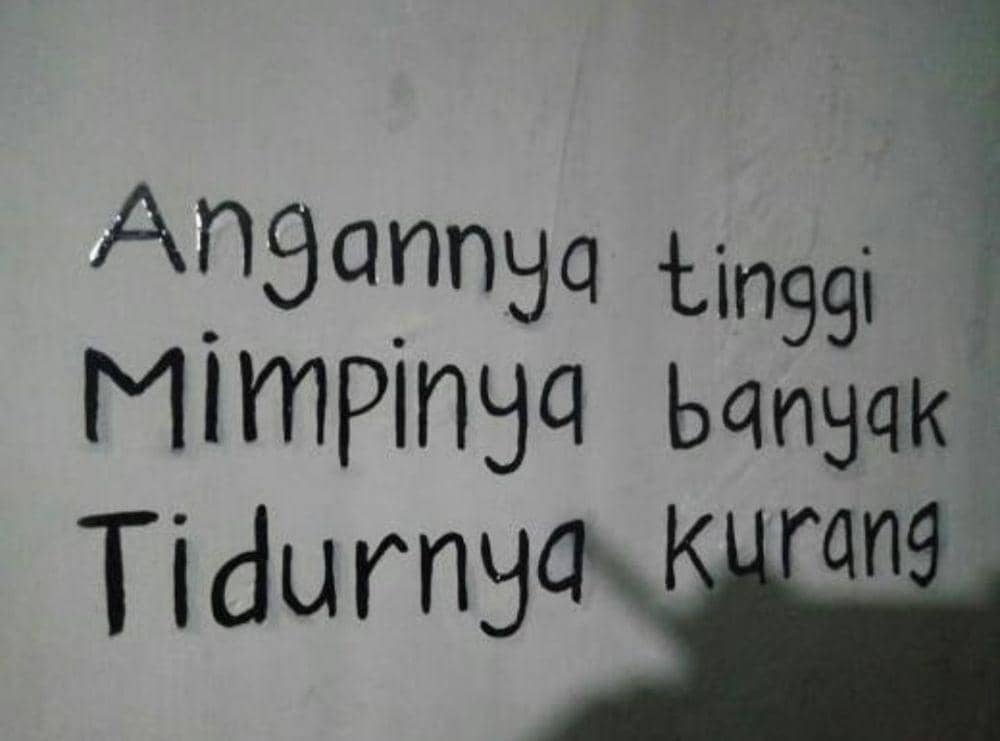 Angannya tinggi
Mimpinya banyak
Tidurnya kurang